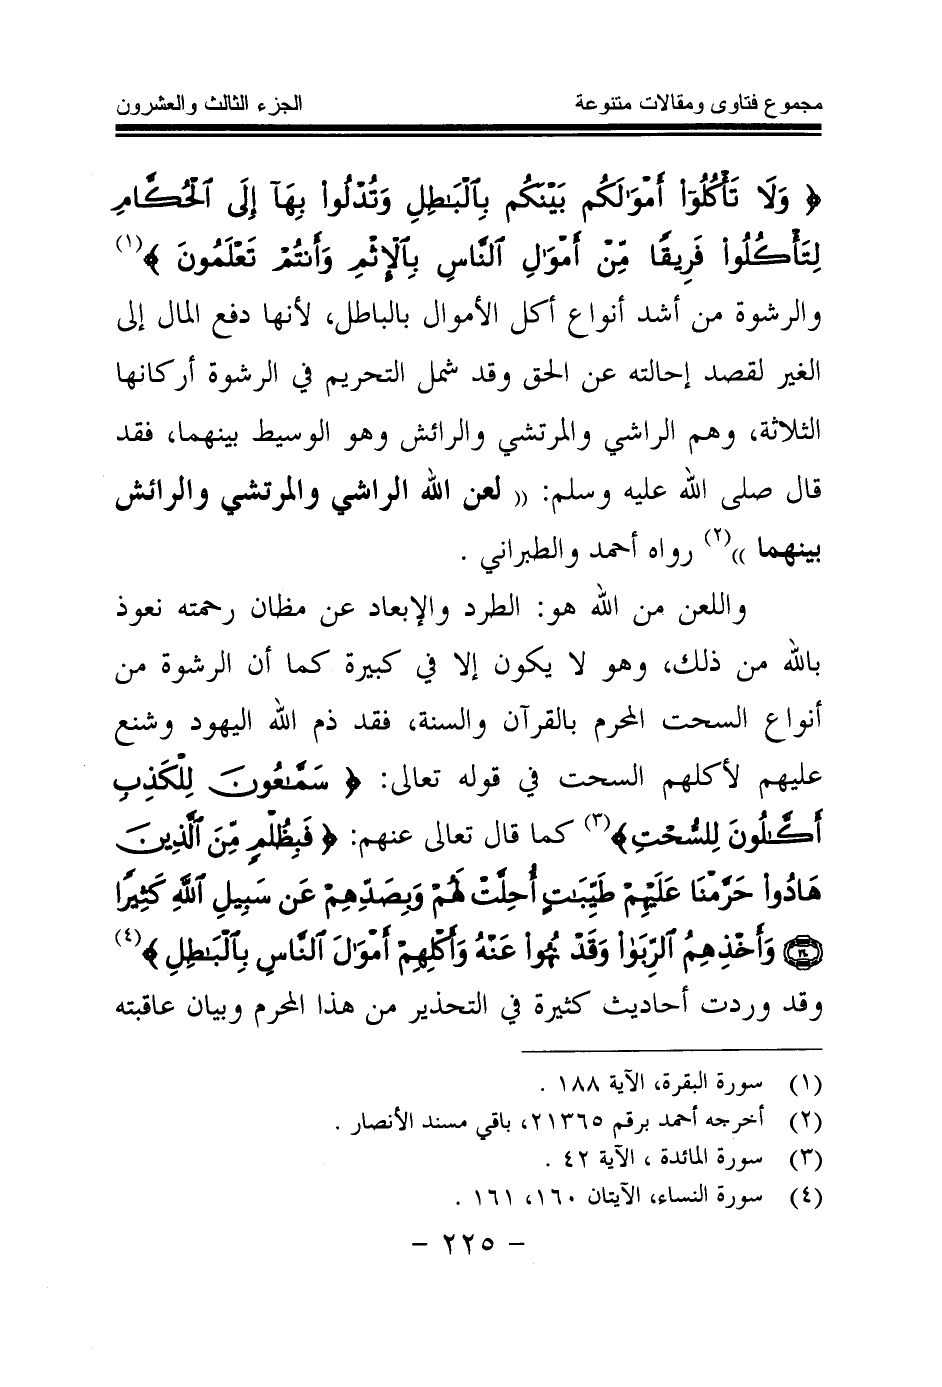 مجموع فتاوى ومقالات متنوعة الجزء الثالث والعشرون
﴿ وَلَا تَأْكُلُوٓا۟ أَمْوَٰلَكُم بَيْنَكُم بِٱلْبَـٰطِلِ وَتُدْلُوا۟ بِهَآ إِلَى ٱلْحُكَّامِ
لِتَأْكُلُوا۟ فَرِيقًا مِّنْ أَمْوَٰلِ ٱلنَّاسِ بِٱلْإِثْمِ وَأَنتُمْ تَعْلَمُونَ ﴾(١)
والرشوة من أشد أنواع أكل الأموال بالباطل، لأنها دفع المال إلى
الغير لقصد إحالته عن الحق وقد شمل التحريم في الرشوة أركانها
الثلاثة، وهم الراشي والمرتشي والرائش وهو الوسيط بينهما، فقد
قال صلى الله عليه وسلم: (( لعن الله الراشي والمرتشي والرائش
بينهما ))(٢) رواه أحمد والطبراني .
واللعن من الله هو: الطرد والإبعاد عن مظان رحمته نعوذ
بالله من ذلك، وهو لا يكون إلا في كبيرة كما أن الرشوة من
أنواع السحت المحرم بالقرآن والسنة، فقد ذم الله اليهود وشنع
عليهم لأكلهم السحت في قوله تعالى: ﴿ سَمَّـٰعُونَ لِلْكَذِبِ
أَكَّـٰلُونَ لِلسُّحْتِ﴾(٣) كما قال تعالى عنهم: ﴿ فَبِظُلْمٍ مِّنَ ٱلَّذِينَ
هَادُوا۟ حَرَّمْنَا عَلَيْهِمْ طَيِّبَـٰتٍ أُحِلَّتْ لَهُمْ وَبِصَدِّهِمْ عَن سَبِيلِ ٱللَّهِ كَثِيرًا
۝ وَأَخْذِهِمُ ٱلرِّبَوٰا۟ وَقَدْ نُهُوا۟ عَنْهُ وَأَكْلِهِمْ أَمْوَٰلَ ٱلنَّاسِ بِٱلْبَـٰطِلِ ﴾(٤)
وقد وردت أحاديث كثيرة في التحذير من هذا المحرم وبيان عاقبته
(١) سورة البقرة، الآية ١٨٨ .
(٢) أخرجه أحمد برقم ٢١٣٦٥، باقي مسند الأنصار .
(٣) سورة المائدة ، الآية ٤٢ .
(٤) سورة النساء، الآيتان ١٦٠، ١٦١ .
- ٢٢٥ -